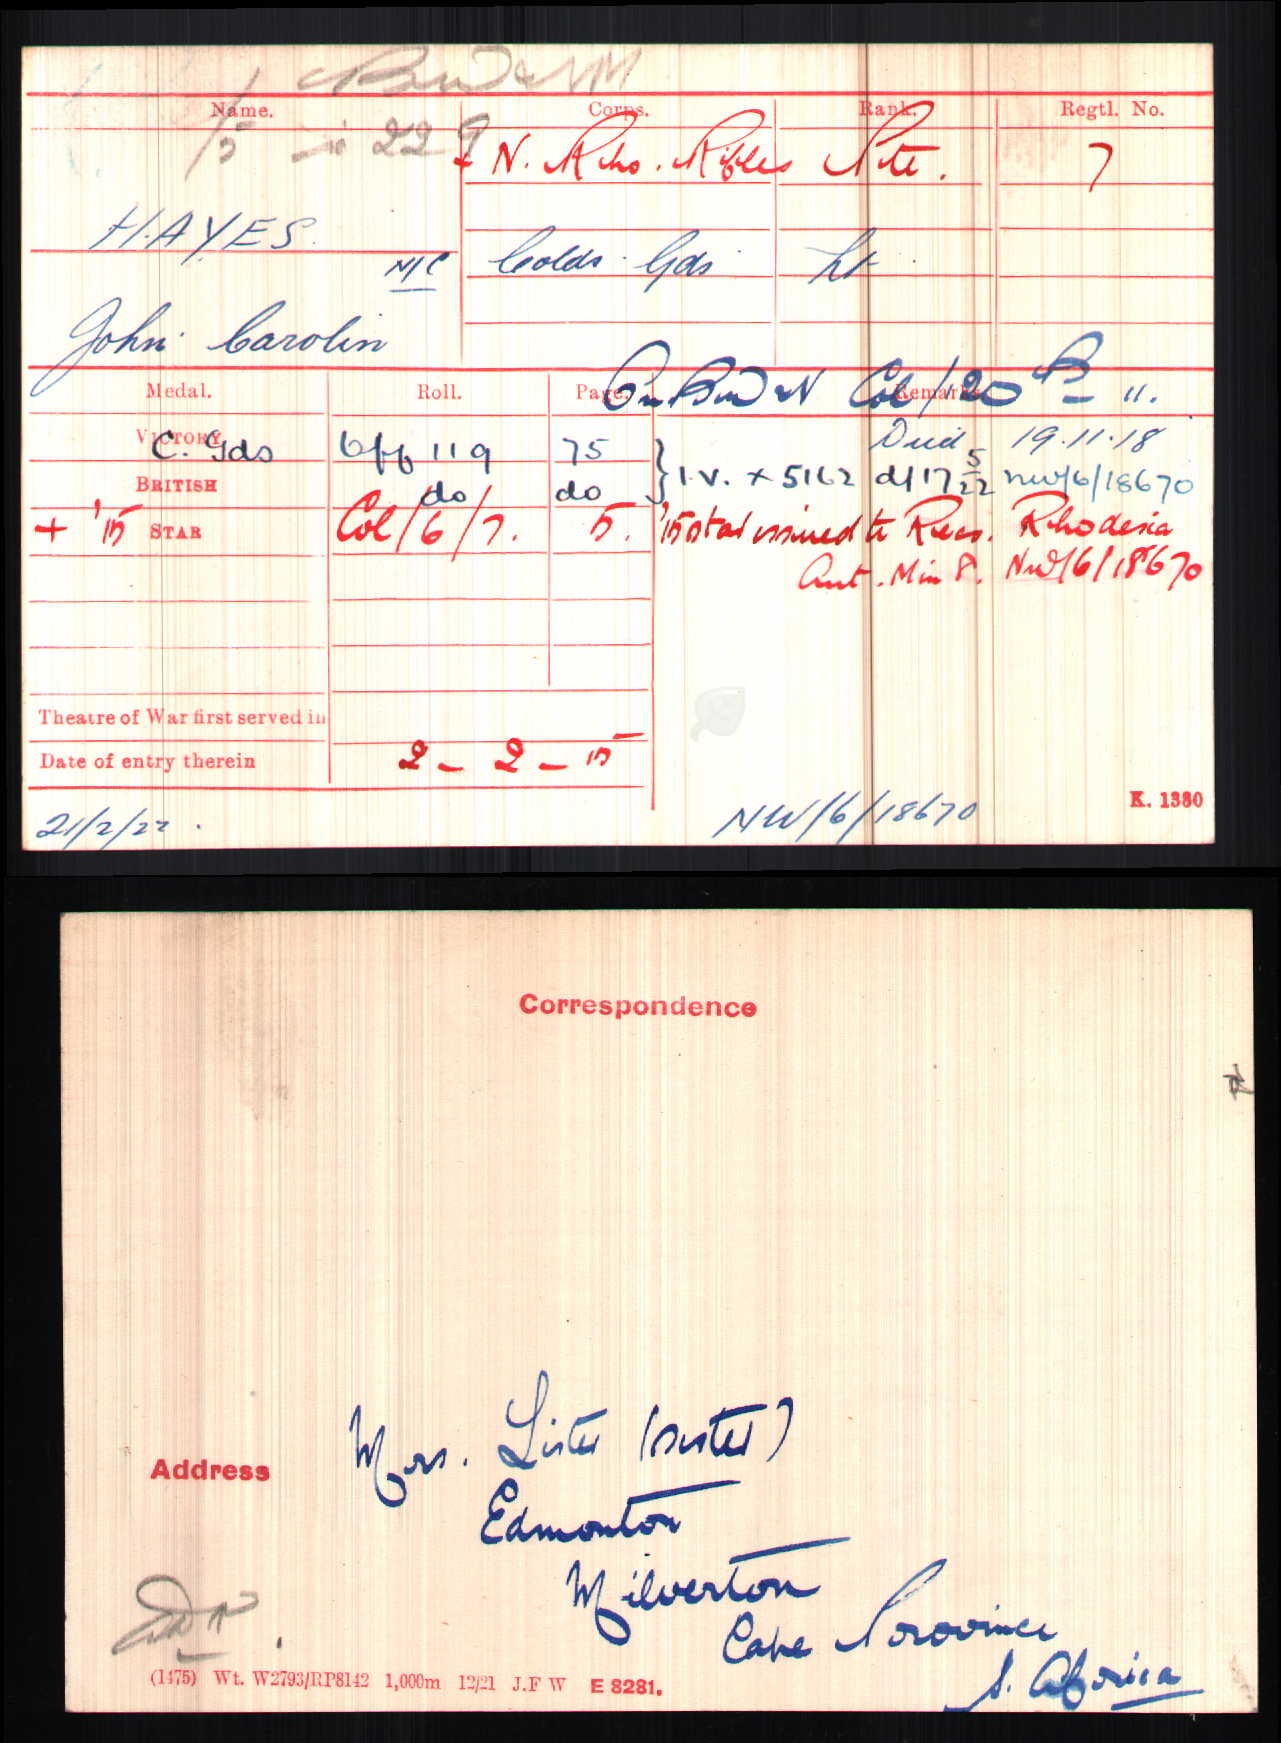 Name. Corps. Rank. Regtl. No.
229
+ N. Rho. Rifles Pte. 7
HAYES.
M/C Colds. Gds Lt
John Carolin
Medal. Roll. Page. Remarks.
On BW & V Col/120 B - 11.
VICTORY C. Gds Off 119 75 Died 19.11.18
BRITISH do do } I.V. x 5162 d/17 5/22 NW/6/18670
+ '15 STAR Col/6/7. 5. '15 Star issued to Recs. Rhodesia
Aut. Min 8. NW/6/18670
Theatre of War first served in
Date of entry therein 2 - 2 - 15
K. 1380
21/2/22. NW/6/18670
Correspondence
Address Mrs. Lister (sister)
Edmonton
Milverton
Cape Province
S. Africa
(1475) Wt. W2793/RP8142 1,000m 12/21 J.F W E 8281.